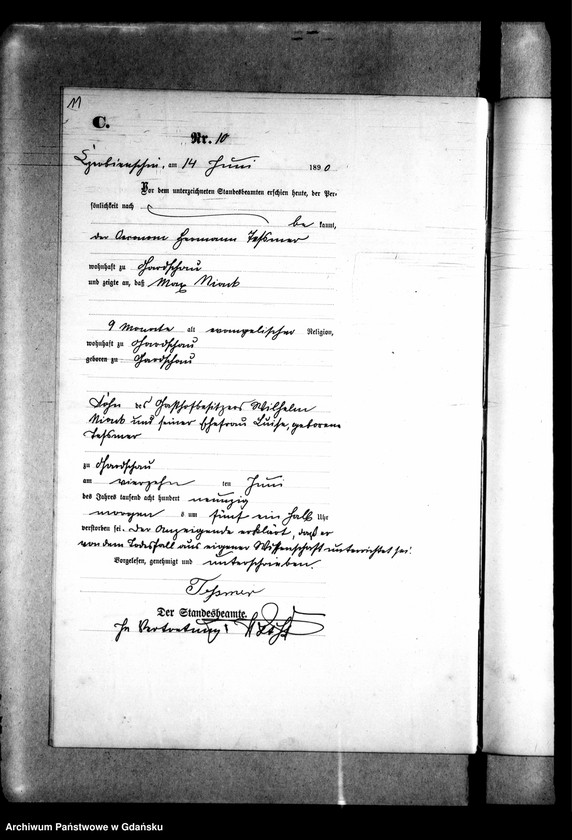 11
C.
Nr. 10
am 14 Juni 1890
Vor dem unterzeichneten Standesbeamten erschien heute, der Per-
sönlichkeit nach
be kannt,
der Oeconom Hermann Tessmer
wohnhaft zu Gardschau
und zeigte an, daß Max
9 Monate alt evangelischer Religion,
wohnhaft zu Gardschau
geboren zu Gardschau
Sohn des Gasthofbesitzers Wilhelm
und seiner Ehefrau Luise, geborene
Tessmer
zu Gardschau
am vierzehn ten Juni
des Jahres tausend acht hundert neunzig
morgens um fünf ein halb Uhr
verstorben sei. Der Anzeigende erklärt, daß er
von dem Todesfall aus eigener Wissenschaft unterrichtet sei.
Vorgelesen, genehmigt und unterschrieben.
Tessmer
Der Standesbeamte.
In Vertretung:
Archiwum Państwowe w Gdańsku